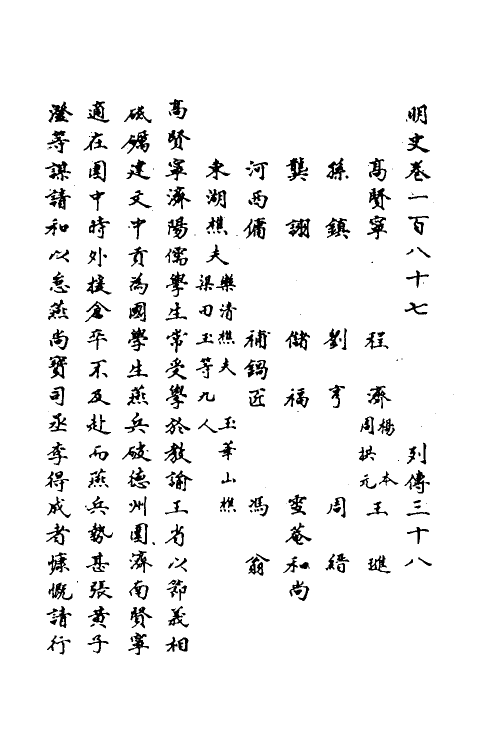 明史卷一百八十七 列傳三十八
高賢寧 程濟 楊本 周拱元 王璡
孫鎮 劉亨 周縉
龔詡 儲福 雪菴和尚
河西傭 補鍋匠 馮翁
東湖樵夫 樂清樵夫 玉華山樵 梁田玉等九人
高賢寧濟陽儒學生常受學於教諭王省以節義相
砥礪建文中貢為國學生燕兵破德州圍濟南賢寧
適在圍中時外援倉卒不及赴而燕兵勢甚張黃子
澄等謀請和以怠燕尚寶司丞李得成者慷慨請行